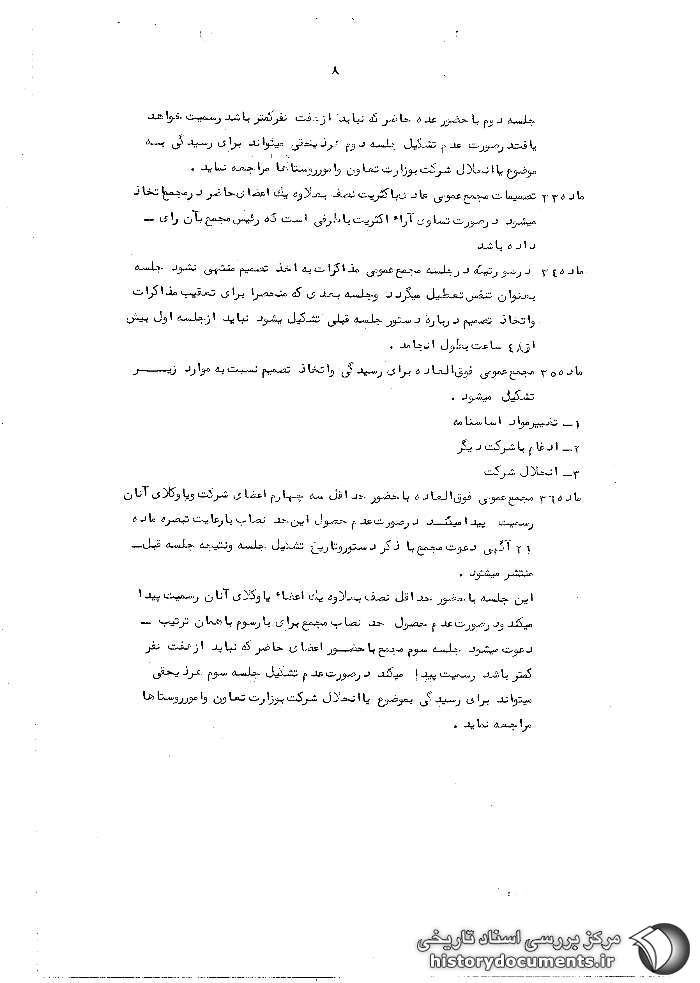 ۸
جلسه دوم با حضور عده حاضر که نباید از هفت نفر کمتر باشد رسمیت خواهد
یافت در صورت عدم تشکیل جلسه دوم هر ذیحقی میتواند برای رسیدگی بــه
موضوع یا انحلال شرکت بوزارت تعاون و امور روستاها مراجعه نماید .
ماده ۳۳ تصمیمات مجمع عمومی عادی باکثریت نصف بعلاوه یک اعضای حاضر در مجمع اتخاذ
میشود در صورت تساوی آراء اکثریت با طرفی است که رئیس مجمع بآن رای ــ
داده باشد
ماده ۳٤ در صورتیکه در جلسه مجمع عمومی مذاکرات به اخذ تصمیم منتهی نشود جلسه
بعنوان تنفس تعطیل میگردد وجلسه بعدی که منحصرا برای تعقیب مذاکرات
و اتخاذ تصمیم درباره دستور جلسه قبلی تشکیل یشود نباید از جلسه اول بیش
از ٤۸ ساعت بطول انجامد .
ماده ۳۵ مجمع عمومی فوق العاده برای رسیدگی و اتخاذ تصمیم نسبت به موارد زیـــــر
تشکیل میشود .
۱ــ تغییر مواد اساسنامه
۲ــ ادغام با شرکت دیگر
۳ــ انحلال شرکت
ماده ۳٦ مجمع عمومی فوق العاده با حضور حداقل سه چهارم اعضای شرکت ویا وکلای آنان
رسمیت پیدا میکنـد در صورت عدم حصول این حد نصاب با رعایت تبصره ماده
۲۱ آگهی دعوت مجمع با ذکر دستور وتاریخ تشکیل جلسه ونتیجه جلسه قبل ــ
منتشر میشود .
این جلسه با حضور حداقل نصف بعلاوه یک اعضاء یا وکلای آنان رسمیت پیدا
میکند ودر صورت عدم حصول حد نصاب مجمع برای بار سوم با همان ترتیب ــ
دعوت میشود جلسه سوم مجمع با حضـور اعضای حاضر که نباید از هفت نفر
کمتر باشد رسمیت پیدا میکند در صورت عدم تشکیل جلسه سوم هر ذیحقی
میتواند برای رسیدگی بموضوع یا انحلال شرکت بوزارت تعاون و امور روستا ها
مراجعه نماید .
مرکز بررسی اسناد تاریخی
historydocuments.ir